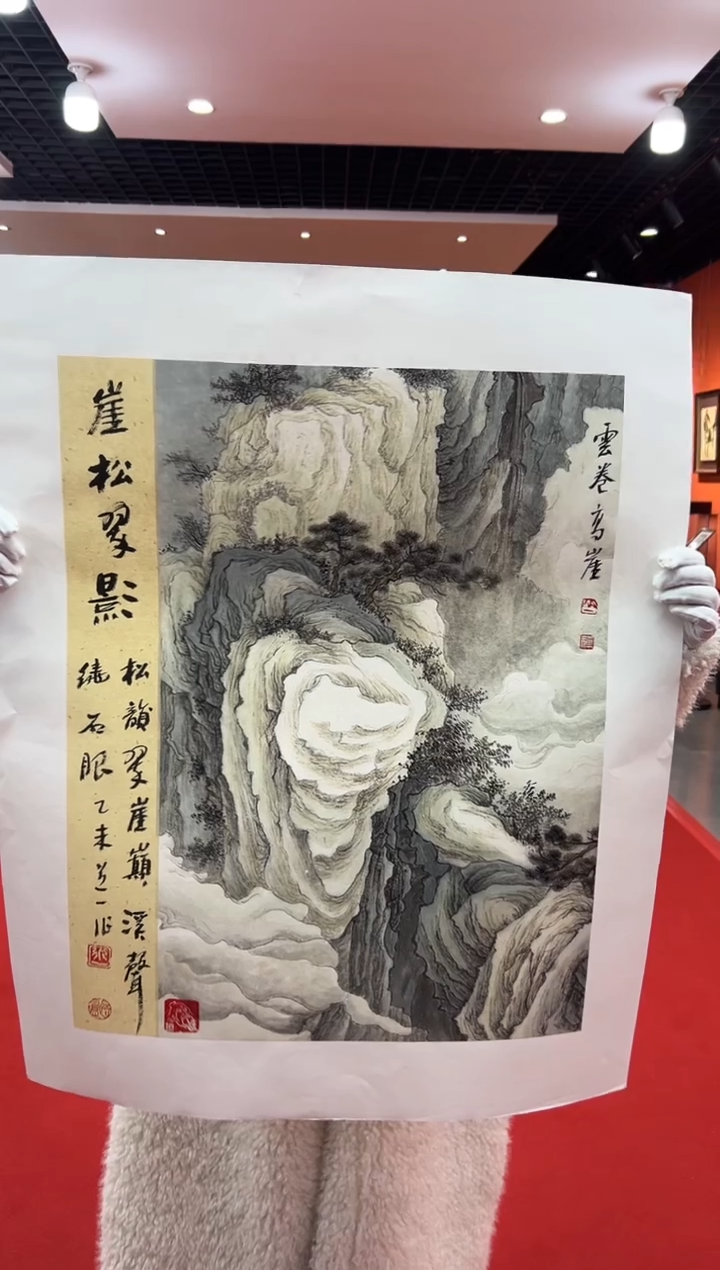 雲卷高崖
崖松翠影
松韻翠崖巔溪聲
繞石眼乙未道一作